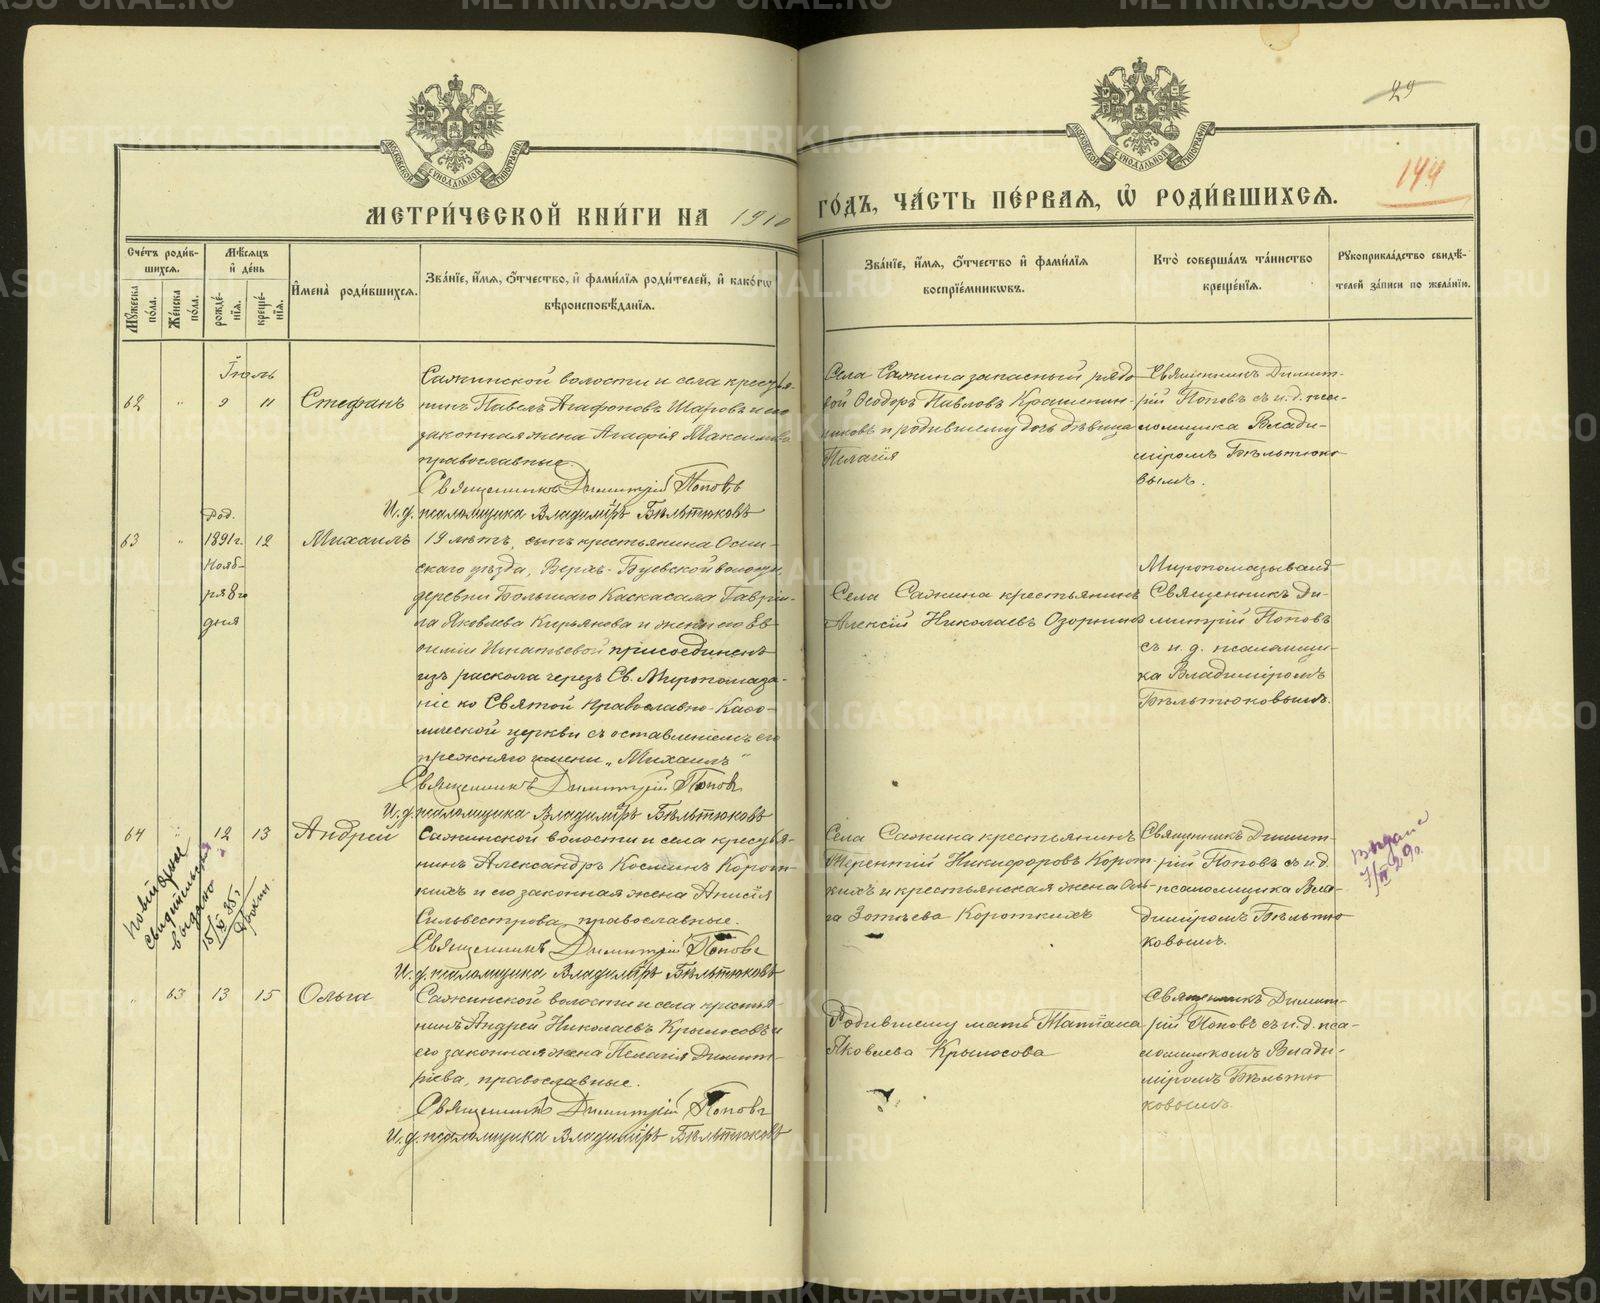 29
144
МЕТРИ́ЧЕСКОЙ КНИ́ГИ НА 1910 ГО́ДЪ, ЧА́СТЬ ПЕ́РВАЯ, Ѿ РОДИ́ВШИХСѦ.
МОСКОВСКОЙ СѴНОДАЛЬНОЙ ТИПОГРАФІИ
МОСКОВСКОЙ СѴНОДАЛЬНОЙ ТИПОГРАФІИ
Сче́тъ роди́в-
шихсѧ.
Мꙋ́жеска по́ла.
Же́нска по́ла.
Мѣ́сѧцъ
и҆ де́нь
рожде́-
нїѧ.
креще́-
нїѧ.
И҆мена̀ роди́вшихсѧ.
Зва́нїе, и҆́мѧ, ѻ҆́тчество, и҆ фами́лїѧ роди́телей, и҆ како́гѡ
вѣроисповѣ́данїѧ.
Зва́нїе, и҆́мѧ, ѻ҆́тчество и҆ фами́лїѧ
воспрїе́мникѡвъ.
Кто̀ соверша́лъ та́инство
креще́нїѧ.
Рꙋкоприкла́дство свидѣ́-
телей за́писи по жела́нїю.
Іюль
62 " 9 11 Стефанъ
Сажинской волости и села крестья-
нинъ Павелъ Агафоновъ Шаровъ и его
законная жена Агафія Максимова
православные.
Священникъ Димитрій Поповъ
И.д. псаломщика Владиміръ Бѣльтюковъ
Села Сажина запасный рядо-
вой Ѳеодоръ Павловъ Крашенин-
никовъ и родившему дочь дѣвица
Пелагія
Священникъ Димит-
рій Поповъ съ и.д. пса-
ломщика Влади-
міромъ Бѣльтюко-
вымъ.
Род.
63 " 1891 г. 12 Михаилъ
Нояб-
ря 8го
дня
19 лѣтъ, сынъ крестьянина Осин-
скаго уѣзда, Верхъ-Буевской волости,
деревни Большаго Каскасала Гаврі-
ла Яковлева Кирьякова и жены его Ев-
фиміи Игнатьевой присоединенъ
изъ раскола черезъ Св. Мѵропомаза-
ніе ко Святой Православно-Каѳо-
лической церкви съ оставленіемъ его
прежняго имени „Михаилъ"
Священникъ Димитрій Поповъ
И.д. псаломщика Владиміръ Бѣльтюковъ
Села Сажина крестьянинъ
Алексій Николаевъ Озорнинъ
Мѵропомазывалъ
Священникъ Ди-
митрій Поповъ
съ и.д. псаломщи-
ка Владиміромъ
Бѣльтюковымъ.
64 " 12 13 Андрей
Сажинской волости и села крестья-
нинъ Александръ Косминъ Корот-
кихъ и его законная жена Анисія
Сильвестрова, православные.
Священникъ Димитрій Поповъ
И.д. псаломщика Владиміръ Бѣльтюковъ
Села Сажина крестьянинъ
Терентій Никифоровъ Корот-
кихъ и крестьянская жена Оль-
га Зотьева Короткихъ
Священникъ Димит-
рій Поповъ съ и.д.
псаломщика Вла-
диміромъ Бѣльтю-
ковымъ.
выдано
15/XI 35
" 63 13 15 Ольга
Сажинской волости и села крестья-
нинъ Андрей Николаевъ Крылосовъ и
его законная жена Пелагія Димит-
ріева, православные.
Священникъ Димитрій Поповъ
И.д. псаломщика Владиміръ Бѣльтюковъ
Родившему мать Татіана
Яковлева Крылосова
Священникъ Димит-
рій Поповъ съ и.д. пса-
ломщикомъ Влади-
міромъ Бѣльтю-
ковымъ.
METRIKI.GASO-URAL.RU